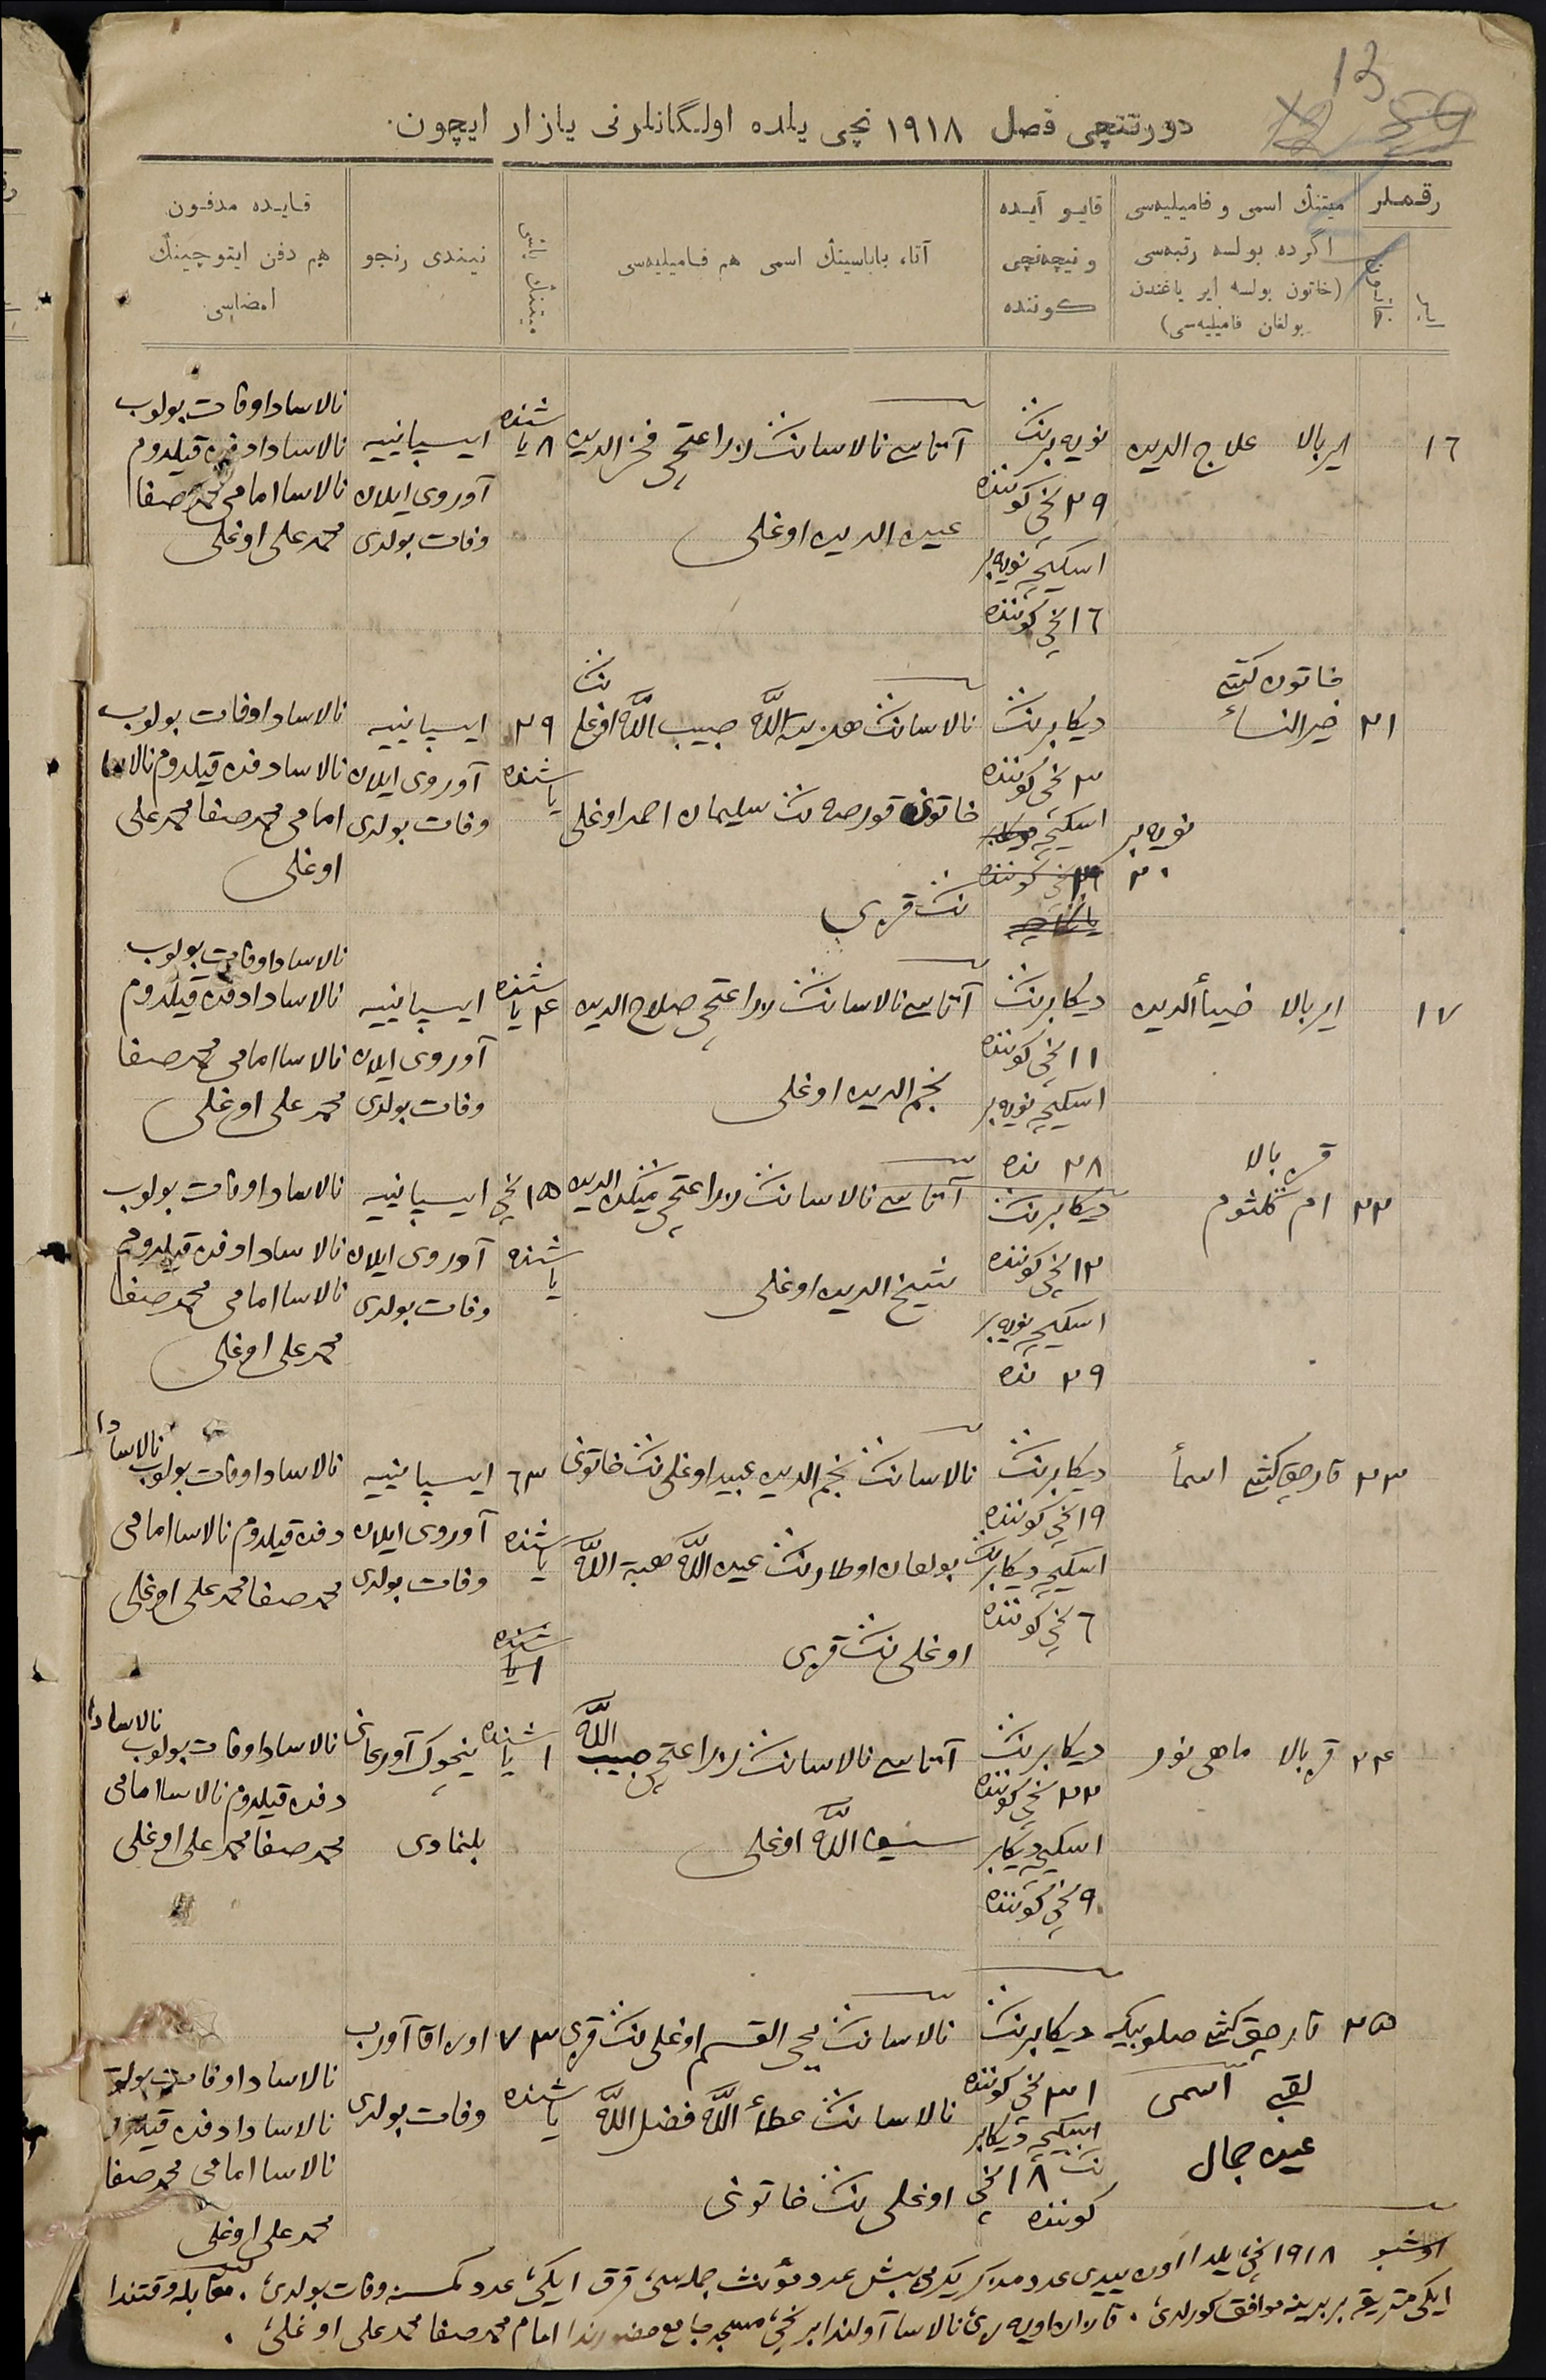 13
دورتنچی فصل ۱۹۱۸ نچی یلده اولگانلرنی یازار ایچون.
رقملر
میتنڭ اسمی و فامیلیه‌سی
اگرده بولسه رتبه‌سی
(خاتون بولسه ایر یاغندن
بولغان فامیلیه‌سی)
قایو آیده
و نیچه‌نچی
كوننده
آتا، باباسینڭ اسمی هم فامیلیه‌سی
نیندی رنجو
قایده مدفون
هم دفن ایتوچینڭ
امضاسی
١٦
ایر بالا علاج الدین
نویه‌برنڭ
٢٩ نچی كوننده
اسكیچه نویه‌بر
١٦ نچی كوننده
آتاسی نالاسانڭ زراعتچی فخرالدین
عین الدین اوغلی
٨ یاشنده
ایسپانییه
آوروی ایلان
وفات بولدی
نالاسادا وفات بولوب
نالاسادا دفن قیلدوم
نالاسا امامی محمد صفا
محمد علی اوغلی
٢١
خاتون كشی
خیرالنساء
دیكابرنڭ
٣ نچی كوننده
اسكیچه
نویه‌بر
٢٠
نالاسانڭ هدیة الله حبیب الله اوغلی نڭ
خاتونی قورصه نڭ سلیمان احمد اوغلی
نڭ قزی
٢٩
یاشنده
ایسپانییه
آوروی ایلان
وفات بولدی
نالاسادا وفات بولوب
نالاسادا دفن قیلدوم نالاسا
امامی محمد صفا محمد علی
اوغلی
١٧
ایر بالا ضیأ الدین
دیكابرنڭ
١١ نچی كوننده
اسكیچه نویه‌بر
٢٨ نده
آتاسی نالاسانڭ زراعتچی صلاح الدین
نجم الدین اوغلی
٤ یاشنده
ایسپانییه
آوروی ایلان
وفات بولدی
نالاسادا وفات بولوب
نالاسادا دفن قیلدوم
نالاسا امامی محمد صفا
محمد علی اوغلی
٢٢
قز بالا
ام كلثوم
دیكابرنڭ
١٢ نچی كوننده
اسكیچه نویه‌بر
٢٩ نده
آتاسی نالاسانڭ زراعتچی
شیخ الدین اوغلی
١٥ نچی
یاشنده
ایسپانییه
آوروی ایلان
وفات بولدی
نالاسادا وفات بولوب
نالاسادا دفن قیلدوم
نالاسا امامی محمد صفا
محمد علی اوغلی
٢٣
قارچق كشی اسمأ
دیكابرنڭ
١٩ نچی كوننده
اسكیچه دیكابرنڭ
٦ نچی كوننده
نالاسانڭ نجم الدین عبید اوغلی نڭ خاتونی
بولغان اوطارنڭ عین الله هبة الله
اوغلی نڭ قزی
٦٣
یاشنده
ایسپانییه
آوروی ایلان
وفات بولدی
نالاسادا وفات بولوب نالاسادا
دفن قیلدوم نالاسا امامی
محمد صفا محمد علی اوغلی
٢٤
قز بالا ماهی نور
دیكابرنڭ
٢٢ نچی كوننده
اسكیچه دیكابر
٩ نچی كوننده
آتاسی نالاسانڭ زراعتچی حبیب الله
سیف الله اوغلی
١ یاشنده
نیچوك آورغانی
بلنمادی
نالاسادا وفات بولوب نالاسادا
دفن قیلدوم نالاسا امامی
محمد صفا محمد علی اوغلی
٢٥
قارچق كشی صلوبیكه
لقبی اسمی
عین جمال
دیكابرنڭ
٣١ نچی كوننده
اسكیچه دیكابر
نڭ ١٨ نچی
كوننده
نالاسانڭ یحی القسم اوغلی نڭ قزی
نالاسانڭ عطأ الله فضل الله
اوغلی نڭ خاتونی
٧٣
یاشنده
اوپقا آوروب
وفات بولدی
نالاسادا وفات بولوب
نالاسادا دفن قیلدوم
نالاسا امامی محمد صفا
محمد علی اوغلی
اوشبو ١٩١٨ نچی یلدا اون ییدی عدد مذكر یكرمی بیش عدد مؤنث جمله‌سی قرق ایكی عدد كمسنه وفات بولدی. مقابله وقتندا
ایكی متریقه بربرینه موافق كورلدی. قازان اویه‌زی نالاسا آولندا برنچی مسجد جامع حضورندا امام محمد صفا محمد علی اوغلی.